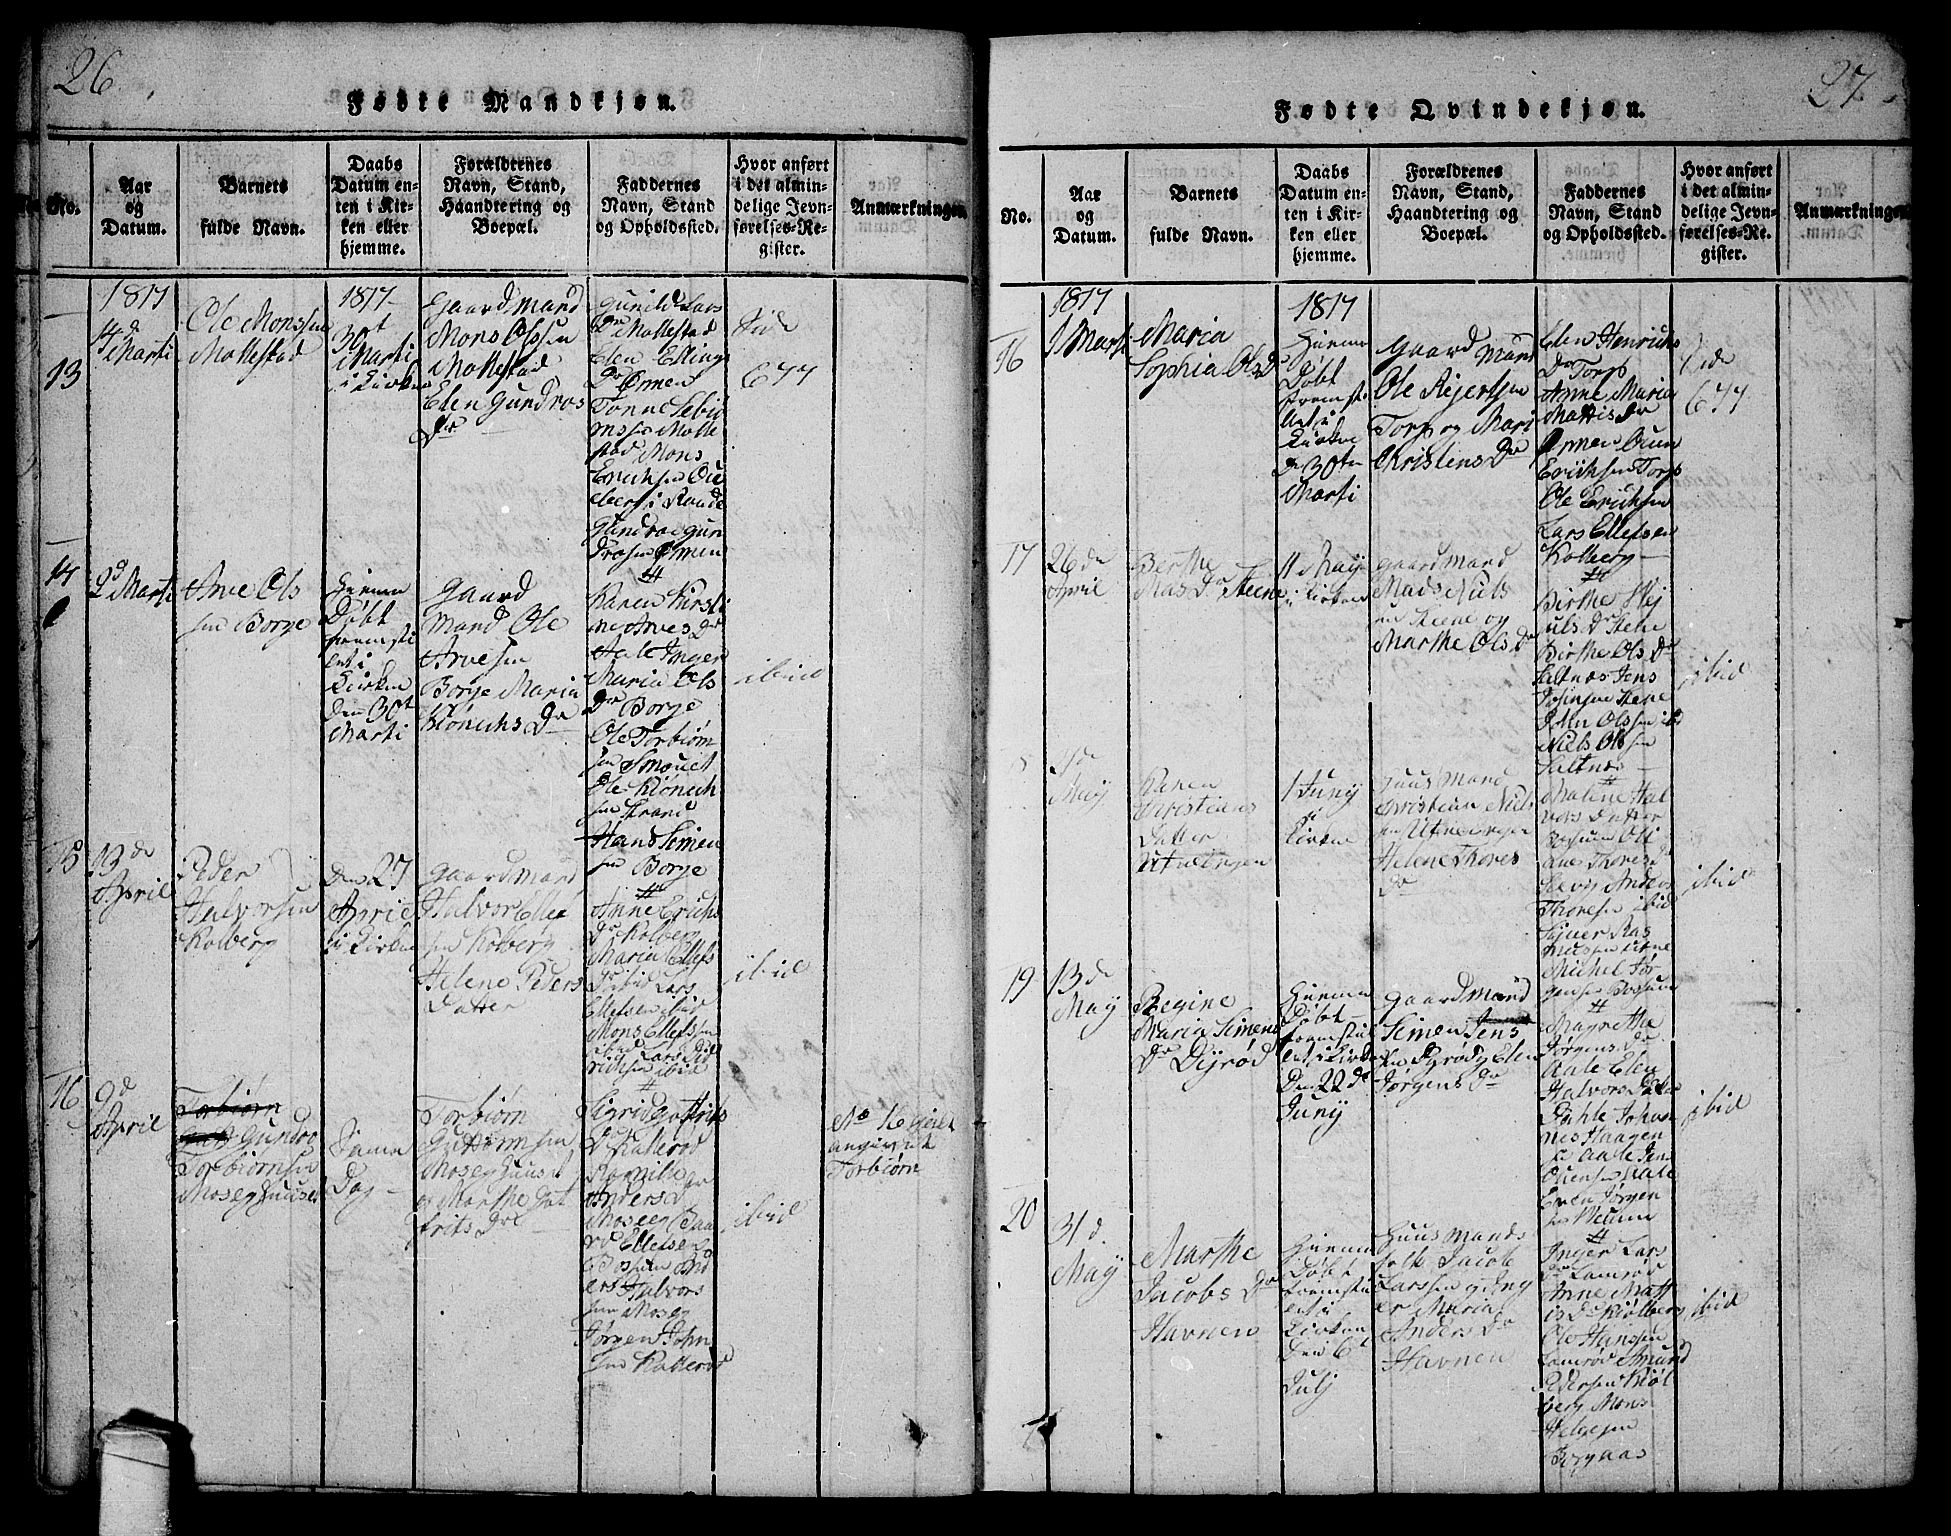 26
Fødte Mandkjøn.
No.
Aar
og
Datum.
Barnets
fulde Navn.
Daabs
Datum en-
ten i Kir-
ken eller
hjemme.
Forældrenes
Navn, Stand,
Haandtering og
Boepæl.
Faddernes
Navn, Stand
og Opholdssted.
Hvor anført
i det almin-
delige Jevn-
førelses-Re-
gister.
Anmærkninger
13
1817
4d
Marti
Ole Monssen
Mollestad
1817
30t
Marti
i Kirken
Gaardmand
Mons Olssen
Mollestad
Elen Gundros
Dr
Gunild Lars
Dr Mollestad
Elen Ellings
Dr Ømen
Tonne Sebiø
rnssen Molle
stad Mons
Erichsen Ou
eberg i Raade
Gundro Gun
drosen Ømen
Side
677
14
2d Marti
Arve Ols
sen Borge
Hiemme
Døbt
fremsti
let i
Kirken
Den 30t
Marti
Gaard
Mand Ole
Arvesen
Borge Maria
Kiønichs Dr
Karen Kirsti
ne Arves Dr
Aale Inger
Maria Ols
Dr Borge
Ole Torbiørn
sen Smauet
Ole Kiønich
sen Strand
Hans Simen
sen Borge
ibid
15
13de
April
Peder
Halvorsen
Kolberg
Den 27
April
i Kirken
Gaardmand
Halvor Ellef
sen Kolberg
Helene Peders
Datter
Anne Erichs
Dr Kolberg
Maria Ellefs
Dr ibid Lars
Ellefsen ibid
Mons Ellefssen
ibid Lars Did
richsen ibid
ibid
16
9d
April
Torbiørn
Gundro
Torbiørnsen
Moseghuuset
Samme
Dag
Torbiørn
Guttormsen
Moseghuuset
og Marthe Got
frits Dr
Sigrid Gotfrits
Dr Katterød
Pernille
Anders Dr
Moseeg
Ellefsen
Bossum And
ers Halvors
sen Moseg
Jørgen John
sen Katterød
ibid
No 16 feilt
angivet
Torbiørn
27
Fødte Qvindekjøn.
No.
Aar
og
Datum.
Barnets
fulde Navn.
Daabs
Datum en-
ten i Kir-
ken eller
hjemme.
Forældrenes
Navn, Stand,
Haandtering og
Boepæl.
Faddernes
Navn, Stand
og Opholdssted.
Hvor anført
i det almin-
delige Jevn-
førelses-Re-
gister.
Anmærkninger
16
1817
1 Marti
Maria
Sophia Ols Dr
1817
Hiemme
Døbt
fremsti
let i
Kirken
D 30te
Marti
Gaard Mand
Ole Sigertsen
Torp og Mari
Christens Dr
Elen Henrichs
Dr Torp
Anne Maria
Mattis Dr
Ømen Ouen
Erichsen Torp
Ole Erichsen
Lars Ellefsen
Kolberg
Side
677
17
26de
April
Berthe
Mas Dr Steene
11 May
i Kirken
Gaardmand
Mads Niels
sen Steene og
Marthe Ols Dr
Birthe Hej
uls Dr Stene
Birthe Ols Dr
Saltnæs Jens
Stene
Olssen ibid
Niels Ols
sen
Saltnæs
ibid
May
Karen
Christians
Datter
Utneengen
1 Juny
i
Kirken
Huusmand
Christian Niels
sen Utneengen
Helene Thores
Dr
Maline Hal
vors Datter
Bossum Oli
ane Thores Dr
Anders
Thoresen ibid
Siver Ras
mussen Utne
Michel Jør
gensen Bossum
ibid
19
13de
May
Regine
Maria Simens
Dr Dyrød
Hiemme
Døbt
fremstil
let i Kirken
Den 22de
Juny
Gaardmand
Simen Jens
sen Dyrød og Elen
Jørgens Dr
Magrethe
Jørgens Dr
Aale Elen
Halvors Datter
Dahle Johan
nes Haagen
sen Aale Jens
Ouensen Aale
Even Jørgen
sen Veum
ibid
20
31d.
May
Marthe
Jacobs Dr
Havnen
Hiemme
Døbt
fremstil
let i
Kirken
Den 6t
July
Huusmands
folk Jacob
Larssen og Ing
er Maria
Anders Dr
Havnen
Inger Lars
Dr Lamrød
Anne Matt
is Dr Kiølberg
Ole Hanssen
Lamrød Amund
Pedersen Kiøl
berg Mons
Helgesen
Borgaas
ibid